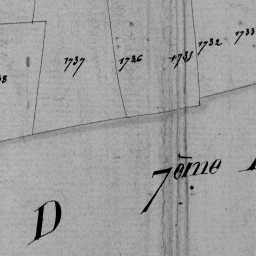 1737
1736
1735
1732
1733
7ème
D